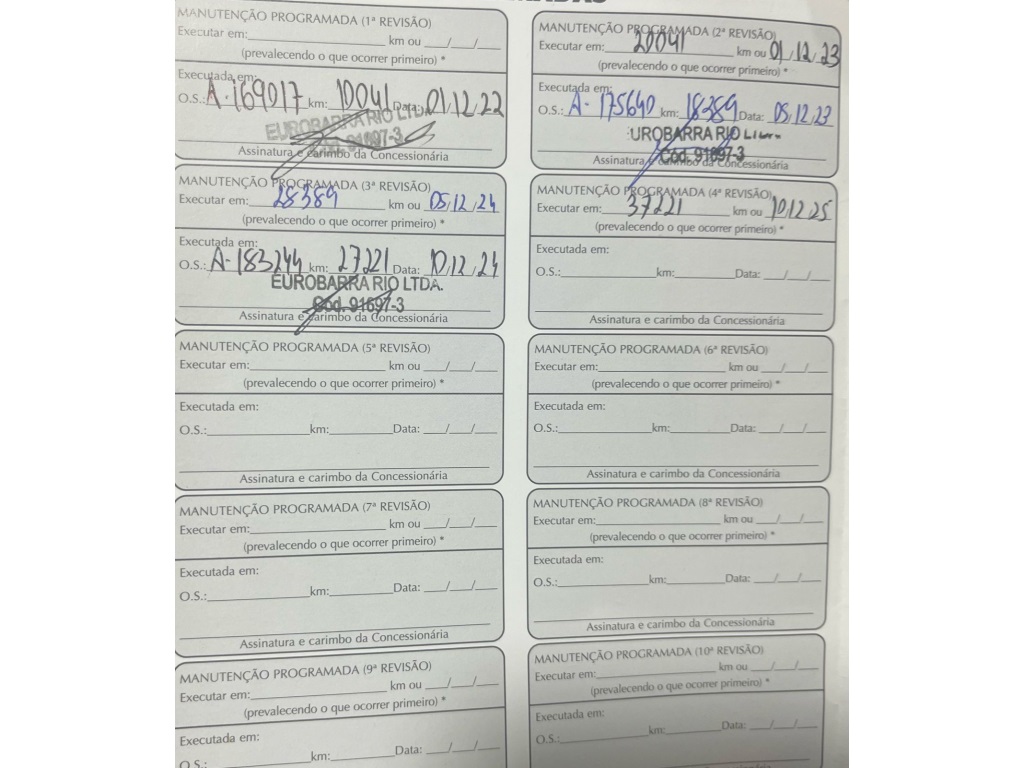 MANUTENÇÃO PROGRAMADA (1ª REVISÃO)
Executar em: km ou / /
(prevalecendo o que ocorrer primeiro) *
Executada em:
O.S.: A-169017 km: 10041 Data: 01/12/22
EUROBARRA RIO LTDA.
Cód. 91697-3
Assinatura e carimbo da Concessionária
MANUTENÇÃO PROGRAMADA (2ª REVISÃO)
Executar em: 20041 km ou 01/12/23
(prevalecendo o que ocorrer primeiro) *
Executada em:
O.S.: A-175640 km: 18389 Data: 05/12/23
UROBARRA RIO
Cód. 91697-3
Assinatura e carimbo da Concessionária
MANUTENÇÃO PROGRAMADA (3ª REVISÃO)
Executar em: 28389 km ou 05/12/24
(prevalecendo o que ocorrer primeiro) *
Executada em:
O.S.: A-183244 km: 27221 Data: 10/12/24
EUROBARRA RIO LTDA.
Cód. 91697-3
Assinatura e carimbo da Concessionária
MANUTENÇÃO PROGRAMADA (4ª REVISÃO)
Executar em: 37221 km ou 10/12/25
(prevalecendo o que ocorrer primeiro) *
Executada em:
O.S.: km: Data: / /
Assinatura e carimbo da Concessionária
MANUTENÇÃO PROGRAMADA (5ª REVISÃO)
Executar em: km ou / /
(prevalecendo o que ocorrer primeiro) *
Executada em:
O.S.: km: Data: / /
Assinatura e carimbo da Concessionária
MANUTENÇÃO PROGRAMADA (6ª REVISÃO)
Executar em: km ou / /
(prevalecendo o que ocorrer primeiro) *
Executada em:
O.S.: km: Data: / /
Assinatura e carimbo da Concessionária
MANUTENÇÃO PROGRAMADA (7ª REVISÃO)
Executar em: km ou / /
(prevalecendo o que ocorrer primeiro) *
Executada em:
O.S.: km: Data: / /
Assinatura e carimbo da Concessionária
MANUTENÇÃO PROGRAMADA (8ª REVISÃO)
Executar em: km ou / /
(prevalecendo o que ocorrer primeiro) *
Executada em:
O.S.: km: Data: / /
Assinatura e carimbo da Concessionária
MANUTENÇÃO PROGRAMADA (9ª REVISÃO)
Executar em: km ou / /
(prevalecendo o que ocorrer primeiro) *
Executada em:
O.S.: km: Data: / /
MANUTENÇÃO PROGRAMADA (10ª REVISÃO)
Executar em: km ou / /
(prevalecendo o que ocorrer primeiro) *
Executada em:
O.S.: km: Data: / /
Assinatura e carimbo da Concessionária